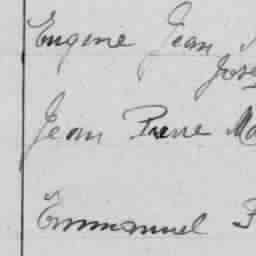 Eugène Jean
Jose
Jean Pierre Ma
Emmanuel F